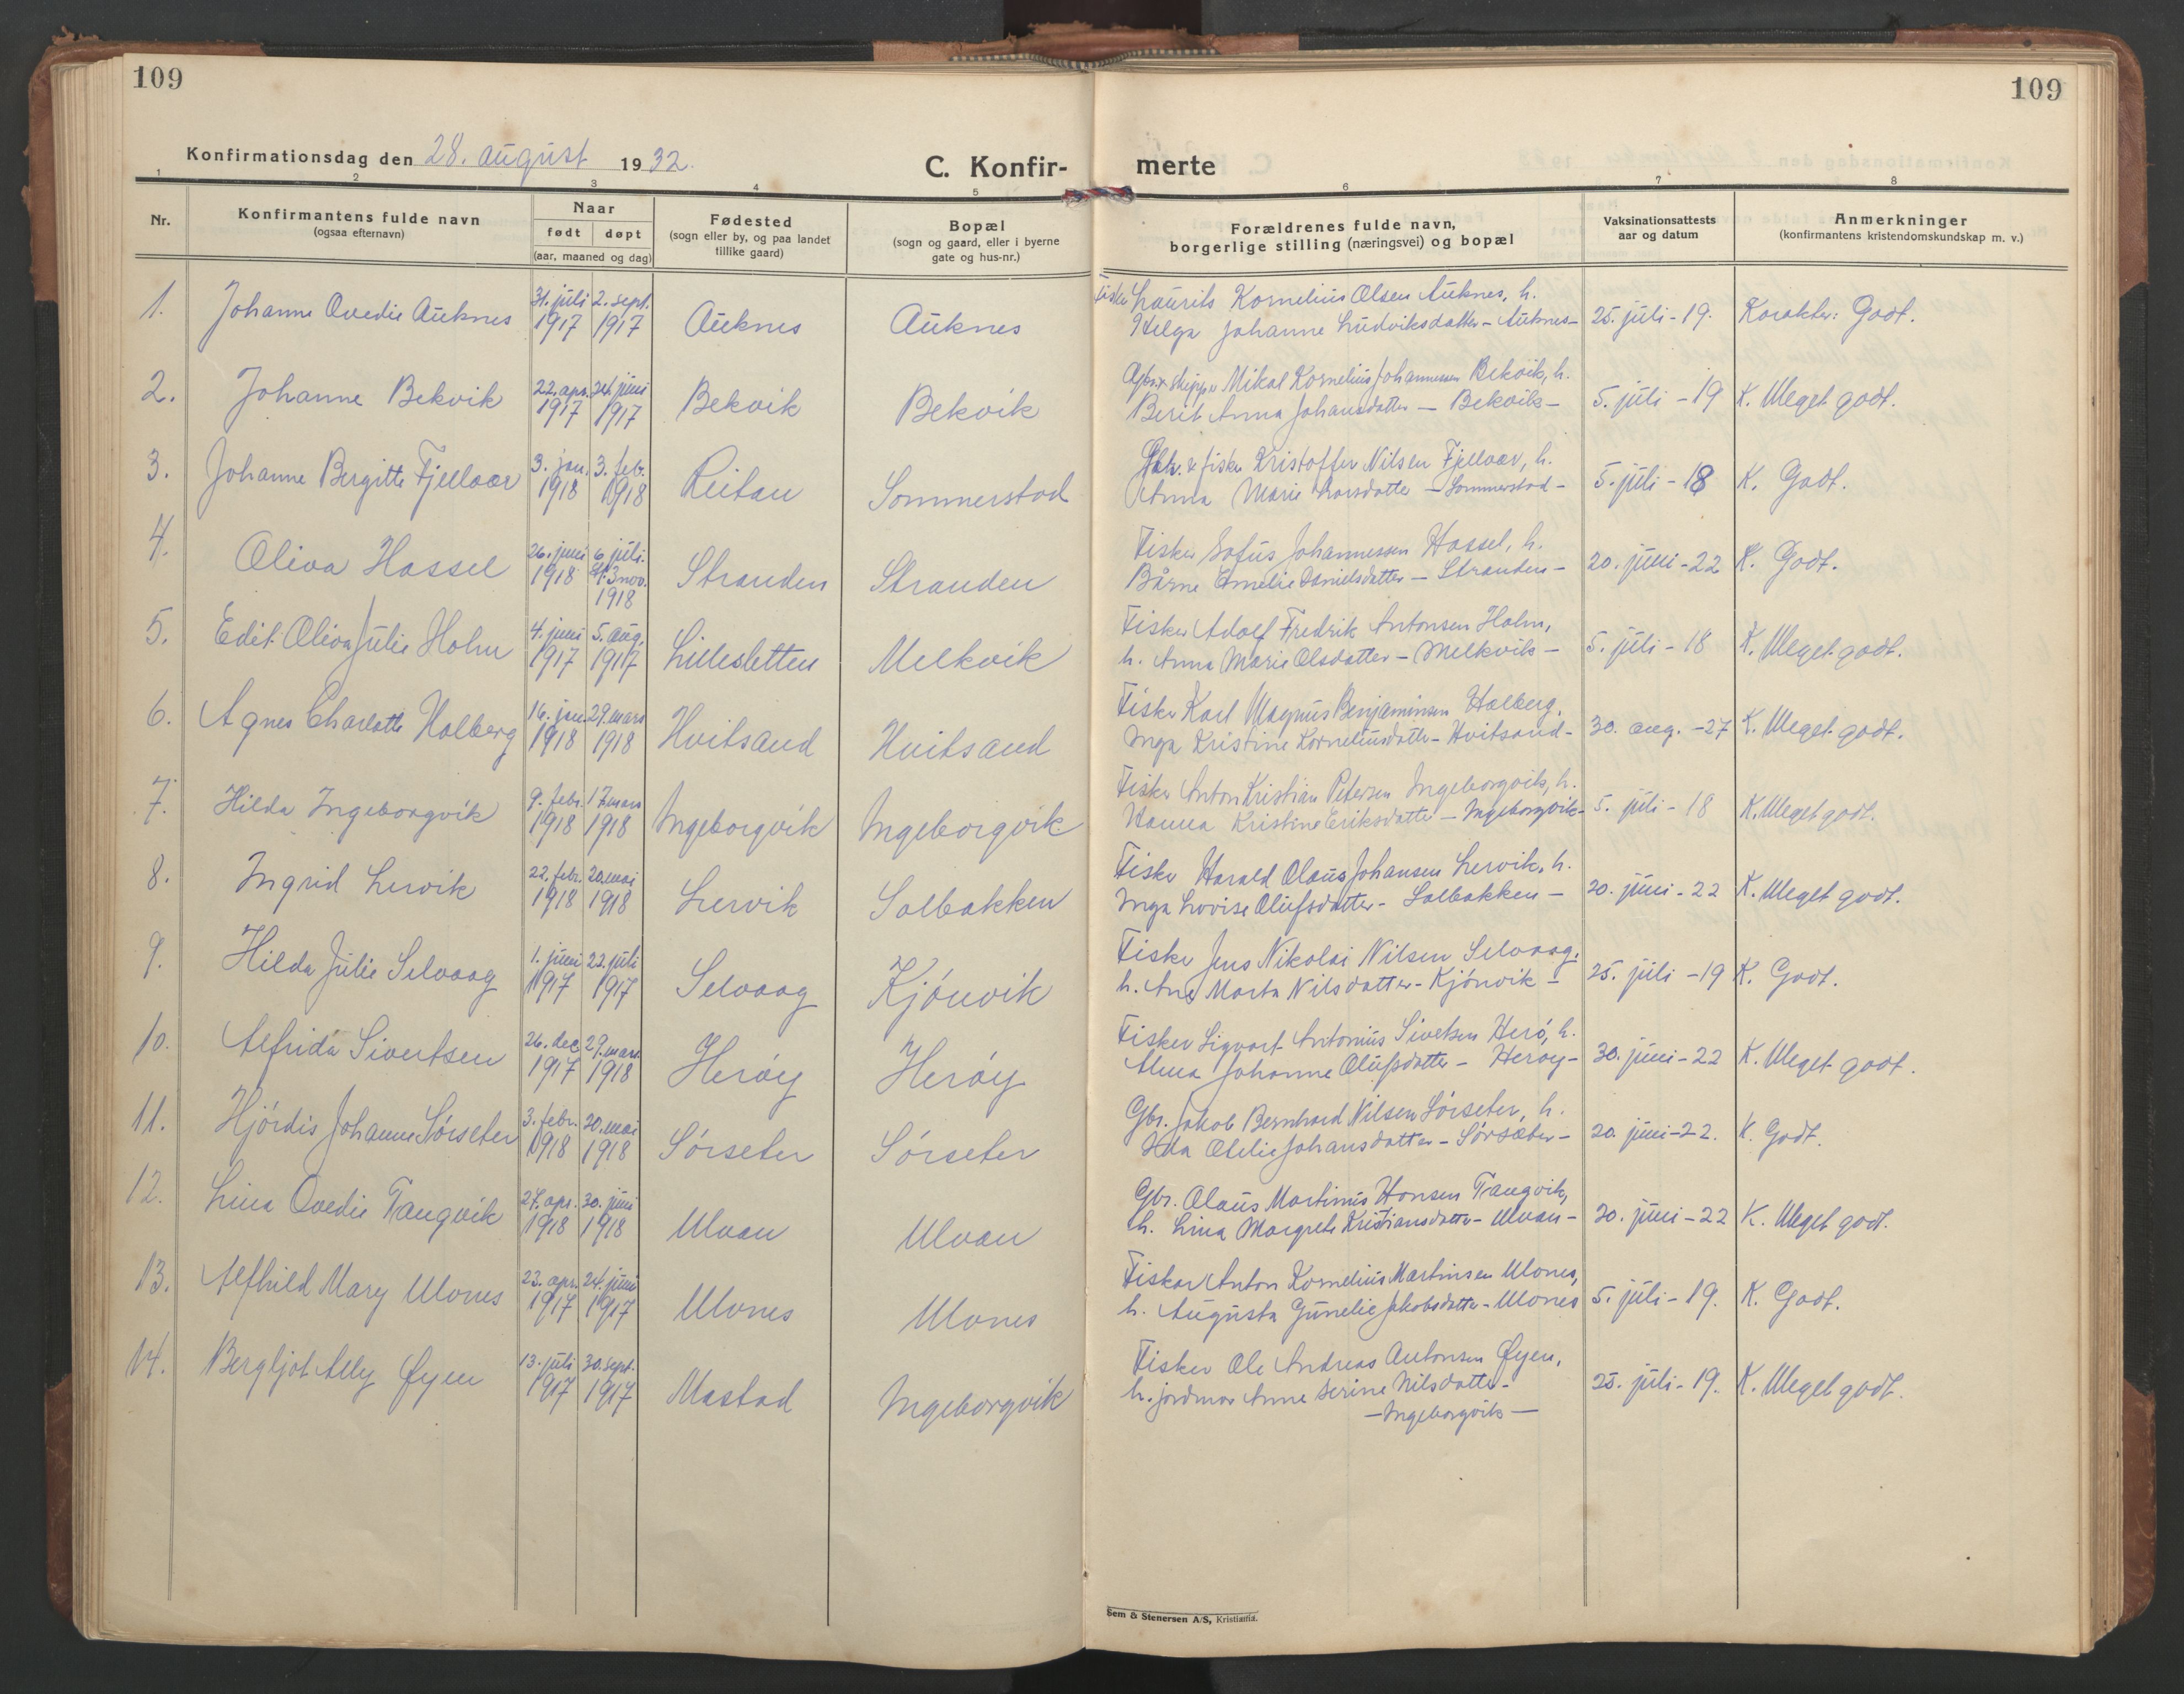 109
109
Konfirmationsdag den 28. august 1932.
C. Konfir- merte
1 2 3 4 5 6 7 8
Nr.
Konfirmantens fulde navn
(ogsaa efternavn)
Naar
født døpt
(aar, maaned og dag)
Fødested
(sogn eller by, og paa landet
tillike gaard)
Bopæl
(sogn og gaard, eller i byerne
gate og hus-nr.)
Forældrenes fulde navn,
borgerlige stilling (næringsvei) og bopæl
Vaksinationsattests
aar og datum
Anmerkninger
(konfirmantens kristendomskundskap m. v.)
1. Johanne Ovedie Auknes 31. juli 1917 2. sept. 1917 Auknes Auknes
Fisker Laurits Kornelius Olsen Auknes, h.
Helga Johanne Ludviksdatter - Auknes - 25. juli - 19. Karakter: Godt.
2. Johanne Bekvik 22. apr. 1917 24. juni 1917 Bekvik Bekvik
Gbr. & skipper Mikal Kornelius Johannessen Bekvik, h.
Berit Anna Johansdatter - Bekvik - 5. juli - 19 K. Meget godt.
3. Johanne Bergitte Fjellvær 3. jan. 1918 3. feb. 1918 Reitan Sommerstad
& fisker Kristoffer Nilsen Fjellvær, h.
Anna Marie Larsdatter - Sommerstad - 5. juli - 18 K. Godt.
4. Oliva Hassel 26. juni 1918 6. juli. 3 nov. 1918 Stranden Stranden
Fisker Sofus Johannessen Hassel, h.
Bårne Emelie Danielsdatter - Stranden - 20. juni - 22 K. Godt.
5. Edit Oliva Julie Holm 4. juni 1917 5. aug. 1917 Lillesletten Melkvik
Fisker Adolf Fredrik Antonsen Holm,
h. Anna Marie Olsdatter - Melkvik - 5. juli - 18 K. Meget godt.
6. Agnes Charlotte Halberg 16. jan. 1918 29. mars 1918 Hvitsand Hvitsand
Fisker Karl Magnus Benjaminsen Halberg,
Inga Kristine Korneliusdatter - Hvitsand - 30. aug. - 27 K. Meget godt.
7. Hilda Ingeborgvik 9. febr. 1918 17. mars 1918 Ingeborgvik Ingeborgvik
Fisker Anton Kristian Petersen Ingeborgvik, h.
Hanna Kristine Eriksdatter - Ingeborgvik - 5. juli - 18 K. Meget godt.
8. Ingrid Lervik 22. febr. 1918 20. mai 1918 Lervik Solbakken
Fisker Harald Olaus Johansen Lervik, h.
Inga Lovise Olufsdatter - Solbakken - 20. juni - 22 K. Meget godt.
9. Hilda Julie Selvaag 1. juni 1917 22. juli 1917 Selvaag Kjönvik
Fisker Jens Nikolai Nilsen Selvaag,
h. Ane Marta Nilsdatter - Kjönvik - 25. juli - 19 K. Godt.
10. Alfrida Sivertsen 26. dec 1917 29. mars 1918 Heröy Heröy
Fisker Sigvart Antonius Sivetsen Herö, h.
Alma Johanne Olufsdatter - Heröy - 30. juni - 22 K. Meget godt.
11. Hjördis Johanne Sörseter 3. febr. 1918 20. mai 1918 Sörseter Sörseter
Gbr. Jakob Bernhard Nilsen Sörseter, h.
Ida Otelie Johansdatter - Sörsæter - 20. juni - 22. K. Godt.
12. Lina Ovedie Tangvik 27. apr. 1918 30. juni 1918 Ulvan Ulvan
Gbr. Olaus Martinus Hansen Tangvik,
h. Lina Margrete Kristiansdatter - Ulvan - 20. juni - 22 K. Meget godt.
13. Alfhild Mary Ulvnes 23. apr. 1917 24. juni 1917 Ulvnes Ulvnes
Fisker Anton Kornelius Martinsen Ulvnes,
h. Augusta Gunelie Jakobsdatter - Ulvnes 5. juli - 19. K. Godt.
14. Bergljot Ally Øyen 13. juli 1917 30. sept. 1917 Mastad Ingeborgvik
Fisker Ole Andreas Antonsen Øyen,
h. jordmor Anne Serine Nilsdatter -
- Ingeborgvik - 25. juli - 19. K. Meget godt.
Sem & Stenersen A/S, Kristiania.